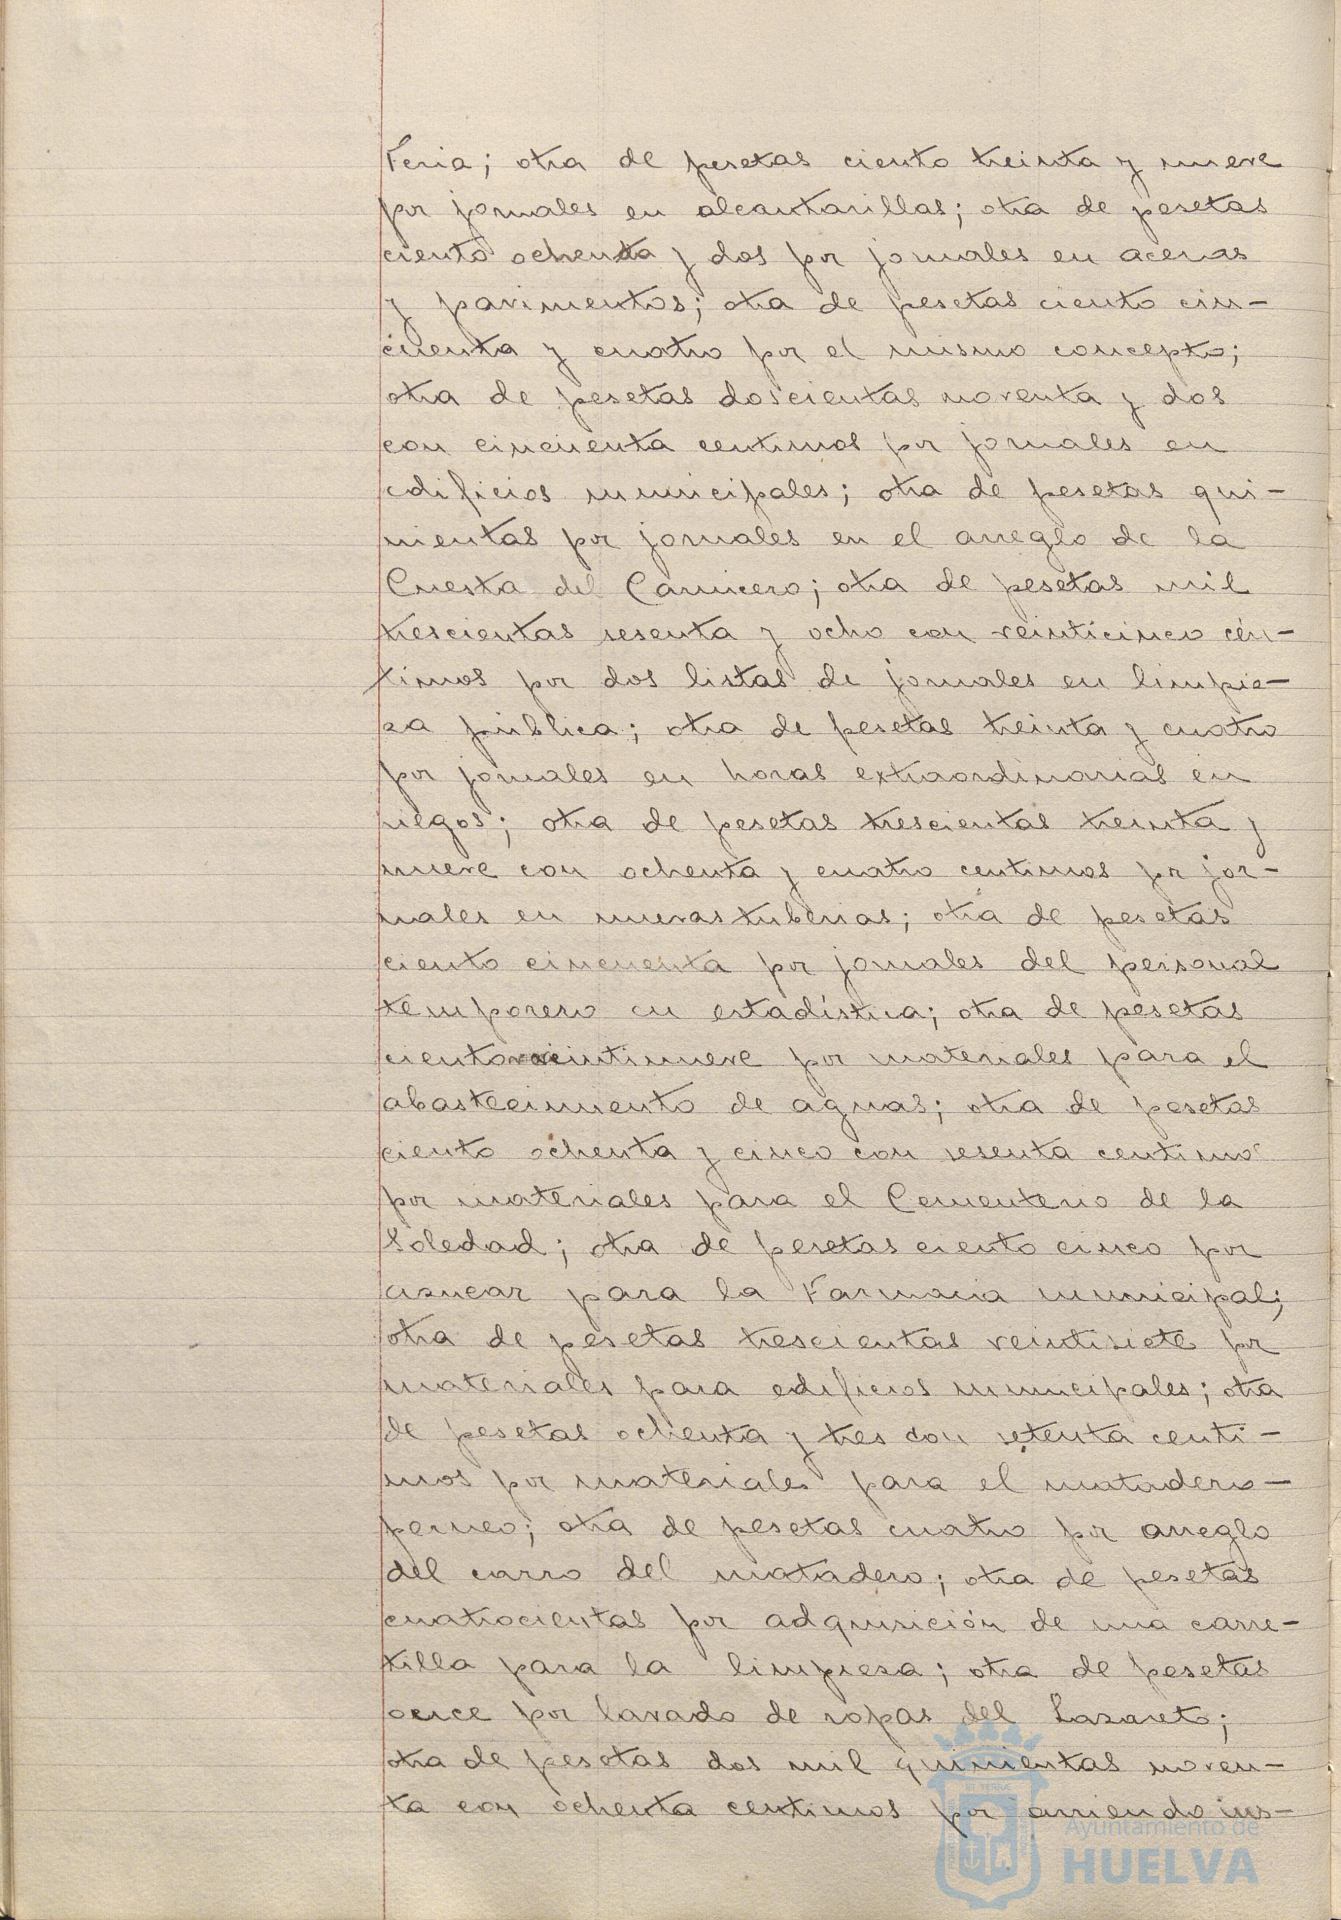 Feria; otra de pesetas ciento treinta y nueve
por jornales en alcantarillas; otra de pesetas
ciento ochenta y dos por jornales en aceras
y pavimentos; otra de pesetas ciento cin-
cuenta y cuatro por el mismo concepto;
otra de pesetas doscientas noventa y dos
con cincuenta centimos por jornales en
edificios municipales; otra de pesetas qui-
nientas por jornales en el arreglo de la
Cuesta del Carnicero; otra de pesetas mil
trescientas sesenta y ocho con veinticinco cén-
timos por dos listas de jornales en limpie-
za pública; otra de pesetas treinta y cuatro
por jornales en horas extraordinarias en
riegos; otra de pesetas trescientas treinta y
nueve con ochenta y cuatro centimos por jor-
nales en nuevas tuberias; otra de pesetas
ciento cincuenta por jornales del personal
temporero en estadística; otra de pesetas
ciento veintinueve por materiales para el
abastecimiento de aguas; otra de pesetas
ciento ochenta y cinco con sesenta centimos
por materiales para el Cementerio de la
Soledad; otra de pesetas ciento cinco por
azucar para la Farmacia municipal;
otra de pesetas trescientas veintisiete por
materiales para edificios municipales; otra
de pesetas ochenta y tres con setenta centi-
mos por materiales para el matadero-
perneo; otra de pesetas cuatro por arreglo
del carro del matadero; otra de pesetas
cuatrocientas por adquisición de una carre-
tilla para la limpieza; otra de pesetas
once por lavado de ropas del Lazareto;
otra de pesetas dos mil quinientas noven-
ta con ochenta centimos por arriendo ins-
Ayuntamiento de
HUELVA